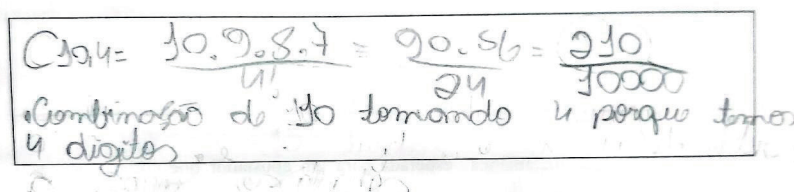 C10,4= 10.9.8.7/4! = 90.56/24 = 210/10000
Combinação de 10 tomando 4 porque temos
4 dígitos